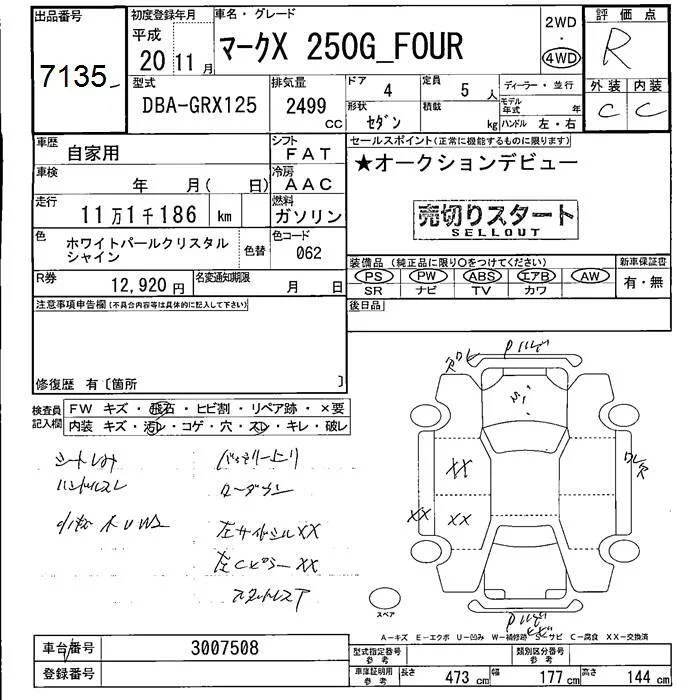 出品番号
7135
初度登録年月
平成
20 11 月
車名・グレード
マークX 250G_FOUR
2WD
・
4WD
評価点
R
型式
DBA-GRX125
排気量
2499
CC
ドア
4
定員
5 人
形状
セダン
積載
kg
ディーラー・並行
モデル年式
年
ハンドル 左・右
外装 内装
C C
車歴
自家用
シフト
FAT
車検
年 月( 日)
冷房
AAC
走行
11万1千186 km
燃料
ガソリン
色
ホワイトパールクリスタル
シャイン
色替
色コード
062
R券
12,920 円
名変通知期限
月 日
セールスポイント(正常に機能するものに限ります)
★オークションデビュー
売切りスタート
SELLOUT
装備品(純正品に限り○をつけてください)
PS PW ABS エアB AW
SR ナビ TV カワ
新車保証書
有・無
後日品
注意事項申告欄(不具合内容等は具体的に記入して下さい)
修復歴 有〔箇所 〕
検査員
記入欄
FW キズ・飛石・ヒビ割・リペア跡・×要
内装 キズ・汚レ・コゲ・穴・スレ・キレ・破レ
ハンドルスレ
ローダウン
左サイドシルXX
左CピラーXX
XX
XX
XX
XX
スペア
A-キズ E-エクボ U-凹み W-補修跡 S-サビ C-腐食 XX-交換済
車台番号
3007508
登録番号
型式指定番号
参考
類別区分番号
参考
車庫証明用
参考
長さ 473 cm 幅 177 cm 高さ 144 cm